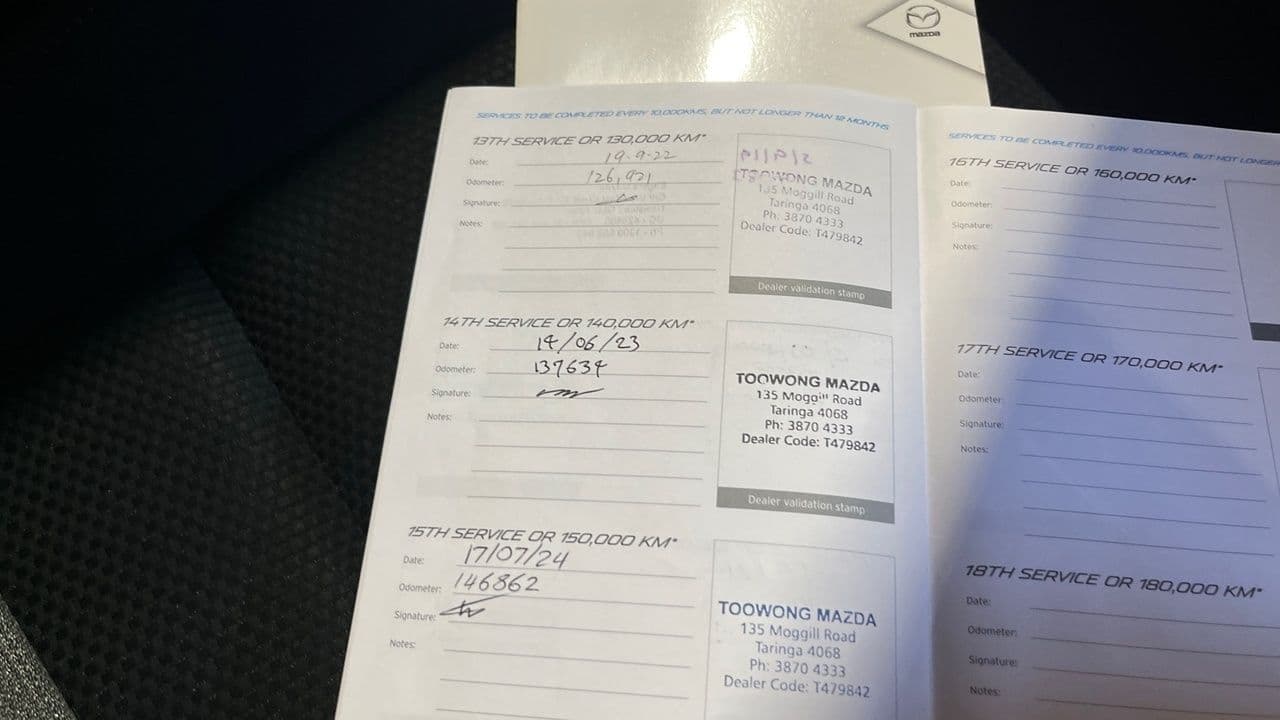 mazda
SERVICES TO BE COMPLETED EVERY 10,000KMS, BUT NOT LONGER THAN 12 MONTHS
13TH SERVICE OR 130,000 KM*
Date: 19-9-22
Odometer: 126,921
Signature:
Notes:
TOOWONG MAZDA
135 Moggill Road
Taringa 4068
Ph: 3870 4333
Dealer Code: T479842
Dealer validation stamp
14TH SERVICE OR 140,000 KM*
Date: 14/06/23
Odometer: 137634
Signature:
Notes:
TOOWONG MAZDA
135 Moggill Road
Taringa 4068
Ph: 3870 4333
Dealer Code: T479842
Dealer validation stamp
15TH SERVICE OR 150,000 KM*
Date: 17/07/24
Odometer: 146862
Signature:
Notes:
TOOWONG MAZDA
135 Moggill Road
Taringa 4068
Ph: 3870 4333
Dealer Code: T479842
SERVICES TO BE COMPLETED EVERY 10,000KMS, BUT NOT LONGER
16TH SERVICE OR 160,000 KM*
Date:
Odometer:
Signature:
Notes:
17TH SERVICE OR 170,000 KM*
Date:
Odometer:
Signature:
Notes:
18TH SERVICE OR 180,000 KM*
Date:
Odometer:
Signature:
Notes: